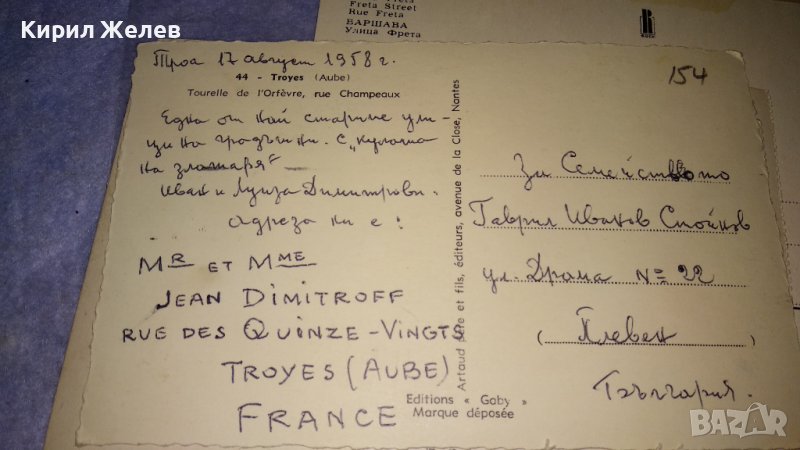 Кирил Желев
Freta Street
Rue Freta
ВАРШАВА
Улица Фрета
Троа 17 август 1958 г.
44 - Troyes (Aube)
Tourelle de l'Orfèvre, rue Champeaux
Една от най старите ули-
ци на градът ни. С „кулата
на златаря"
Иван и Луиза Димитрови.
Адреза ни е:
MR ET MME
JEAN DIMITROFF
RUE DES QUINZE-VINGTS
TROYES (AUBE)
FRANCE
Editions « Goby »
Marque déposée
Artaud père et fils, éditeurs, avenue de la Close, Nantes
154
За Семейството
Гаврил Иванов Стойнов
ул. Драма № 22
(Плевен)
България.
BAZAR